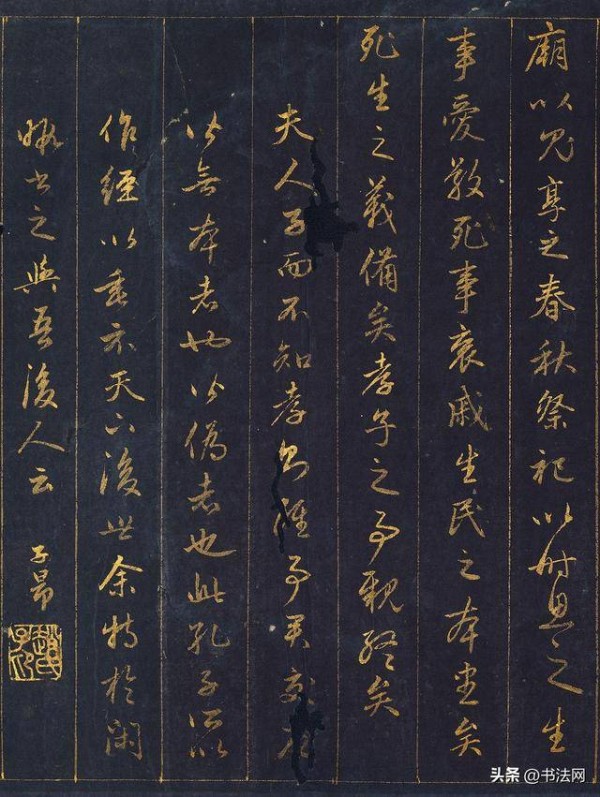 廟以鬼享之春秋祭祀以時思之生
事愛敬死事哀戚生民之本盡矣
死生之義備矣孝子之事親終矣
夫人子而不知孝則雖事君交
皆無本者也皆偽者也此孔子所以
作經以垂示天下後世余特於閑
暇書之與吾後人云 子昂
趙氏子昂
头条 @书法网